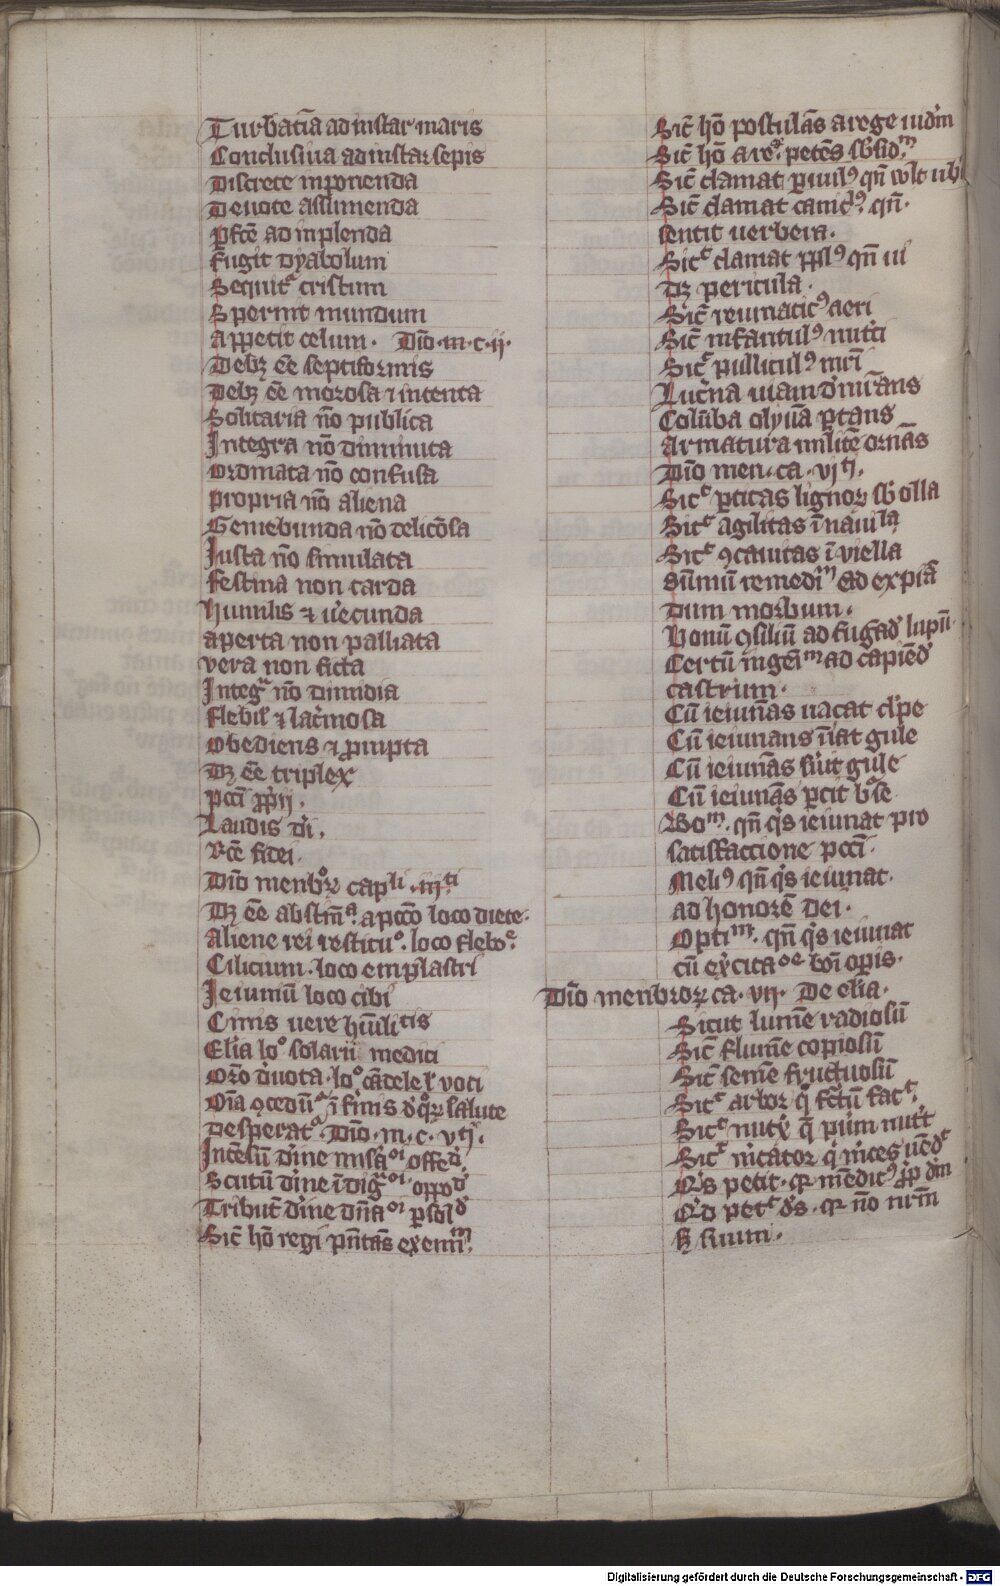 Turbatīa ad instar maris
Conclusiua ad instar sepis
Discrete inponenda
Deuote assumenda
ꝑfc̄e ad inplenda
fugit dyabolum
Sequitᵃ cristum
Spernit mundum
appetit celum. Diō.m.c.ij.
Debꝫ ēē septiformis
Debꝫ ēē morosa ⁊ intenta
Solitaria nō publica
Integra nō diminuta
Ordinata nō confusa
propria nō aliena
Gemebunda nō deliciōsa
Justa nō simulata
festina non tarda
humilis ⁊ ūecunda
aperta non palliata
vera non ficta
Integᵃ nō dimidia
flebil' ⁊ lac̄mosa
Obediens ⁊ ꝓmpta
Dꝫ ēē triplex
pcc̄i ꝓp̄ij.
Laudis dī.
Rc̄e fidei.
Diō menbꝝ capˡⁱ.iijᵗⁱ
Dꝫ ēē abstīnᵃ. a pccō loco diete.
Aliene rei restituᵒ. loco fleboᵉ
Cilicium. loco emplastri
Jeiuniū loco cibi
Cinis uere hūilitis
Elīa loᵒ solarii medici
Orō deuota. loᵒ cādele ł uoti
Oīa ꝯceduᵃ ī finis
desperatᵃ. Diō.m.c.v
Incēsū
Scutū
Tribut̄
Sic̄ hō regi
Sic̄ hō postulās a rege iud'm
Sic̄ hō a reᵍᵉ. petēs sb'sidᵐ
Sic̄ clamat ꝑuulꝰ qn̄ vult ub'
Sic̄ clamat canicꝉꝰ. qn̄.
sentit uerbera.
Sicᵗ clamat pp̄lꝰ qn̄ ui
dꝫ pericula.
Sic̄ reumaticꝰ aeri
Sic̄ infantulꝰ nutr̄i
Sicᵗ pullitulꝰ mr̄i
Luc̄na uiam d'mr̄ans
Colūba olyuā ꝑtans
Armatura militē ornās
Diō men.ca.vj
Sicᵗ ꝑticas lignoꝝ sb' olla
Sicᵗ agilitas ī nauiˡᵃ
Sicᵗ ꝯcauitas ī viella
Sūmū remediᵐ ad expiā
dum morbum.
Bonū ꝯsiliū ad fugād' lupū
Certū ingeīᵐ ad capiēd'
castrum.
Cū ieiunās uacat cl'pe
Cū ieiunans ūat gule
Cū ieiunās ūit gule
Cū ieiunās ꝑcit b'se
Boᵐ. qn̄ qͥs ieiunat pro
satisfaccione pcc̄i.
Meliꝰ qn̄ qͥs ieiunat.
ad honorē dei.
Optiᵐ. qn̄ qͥs ieiunat
cū ex̄citaᵒᵉ bōi opīs.
Diō menbroꝝ ca. vij. De elīa.
Sicut lumē radiosū
Sic̄ flumē copiosū
Sic̄ semē fructuosū
Sicᵗ arbor q̄ fc̄tū facᵗ.
Sicᵗ nut'x q̄ pu'um nut't
Sicᵗ m'cator
Qͥs petit. qꝛ mēdicꝰ ꝓp̄ dm̄
Qͥd petᵗ d's. qꝛ nō nr̄m
sꝫ suum.
Digitalisierung gefördert durch die Deutsche Forschungsgemeinschaft - DFG